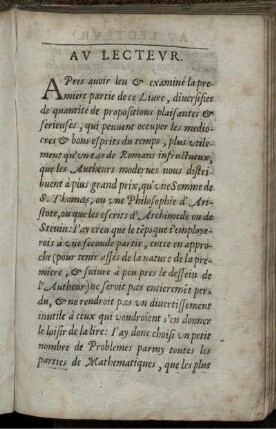 AV LECTEVR.
APres auoir leu & examiné la pre-
miere partie de ce Liure, diuersifiee
de quantité de propositions plaisantes &
serieuses, qui peuuent occuper les medio-
cres & bons esprits du temps, plus vtile-
ment qu'vn tas de Romans infructueux,
que les Autheurs modernes nous distri-
buent à plus grand prix, qu'vne Somme de
S. Thomas, ou vne Philosophie d'Ari-
stote, ou que les escrits d'Archimede ou de
Steuin: I'ay creu que le tẽps que i'employe-
rois à vne seconde partie, entee en appro-
che (pour tenir assés de la nature de la pre-
miere, & suiure à peu pres le dessein de
l'Autheur) ne seroit pas entierement per-
du, & ne rendroit pas vn diuertissement
inutile à ceux qui voudroient s'en donner
le loisir de la lire: I'ay donc choisi vn petit
nombre de Problemes parmy toutes les
parties de Mathematiques, que les plus